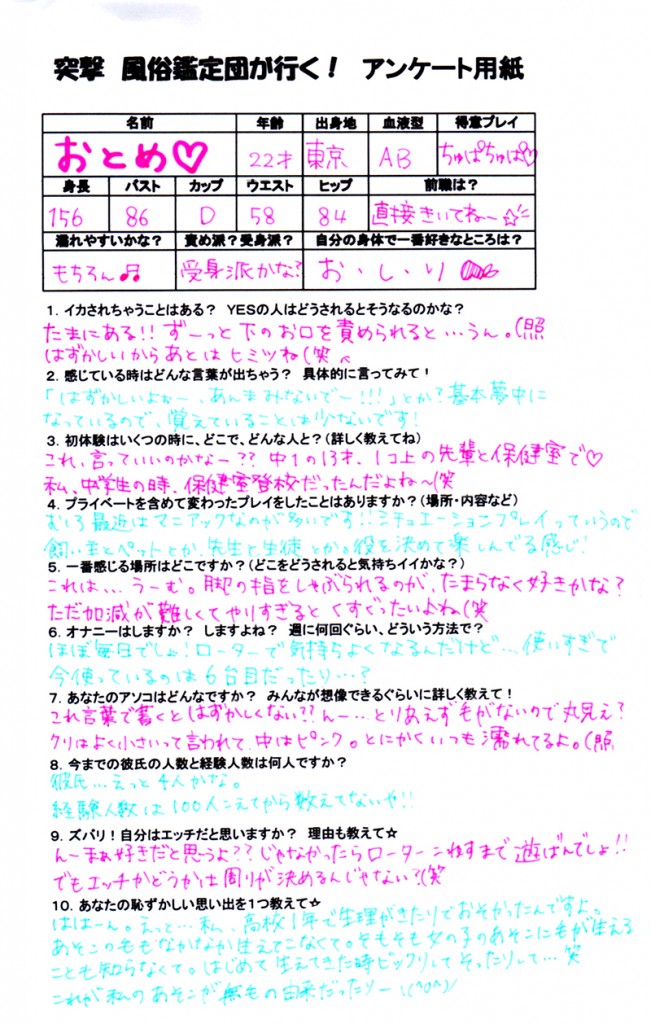 突撃 風俗鑑定団が行く! アンケート用紙
名前 年齢 出身地 血液型 得意プレイ
おとめ♡ 22才 東京 AB ちゅぱちゅぱ♡
身長 バスト カップ ウエスト ヒップ 前職は?
156 86 D 58 84 直接きいてねー☆
濡れやすいかな? 責め派?受身派? 自分の身体で一番好きなところは?
もちろん♬ 受身派かな? お・し・り
1. イカされちゃうことはある? YESの人はどうされるとそうなるのかな?
たまにある!! ずーっと下のお口を責められると…うん。(照
はずかしいからあとはヒミツね(笑
2. 感じている時はどんな言葉が出ちゃう? 具体的に言ってみて!
「はずかしいよぉー、あんまみないでー!!!」とか?基本夢中に
なっているので、覚えていることは少ないです!
3. 初体験はいくつの時に、どこで、どんな人と?(詳しく教えてね)
4. プライベートを含めて変わったプレイをしたことはありますか?(場所・内容など)
むしろ最近はマニアックなのが多いです!!シチュエーションプレイっていうので
飼い主とペットとか、先生と生徒とか。役を決めて楽しんでる感じ!
5. 一番感じる場所はどこですか?(どこをどうされると気持ちイイかな?)
これは… うーむ。脚の指をしゃぶられるのが、たまらなく好きかな?
ただ加減が難しくてやりすぎるとくすぐったいよね(笑
6. オナニーはしますか? しますよね? 週に何回ぐらい、どういう方法で?
ほぼ毎日でしょ!ローターで気持ちよくなるんだけど…使いすぎで
今使っているのは6台目だったり…?
7. あなたのアソコはどんなですか? みんなが想像できるぐらいに詳しく教えて!
これ言葉で書くとはずかしくない??んー…とりあえず毛がないので丸見え?
クリはよく小さいって言われて、中はピンク。とにかくいつも濡れてるよ。(照
8. 今までの彼氏の人数と経験人数は何人ですか?
彼氏…えっと4人かな。
経験人数は100人こえてから数えてないや!!
9. ズバリ!自分はエッチだと思いますか? 理由も教えて☆
んーまぁ好きだと思うよ??じゃなかったらローターこわすまで遊ばんでしょ!!
でもエッチかどうかは周りが決めるんじゃない?(笑
10. あなたの恥ずかしい思い出を1つ教えて☆